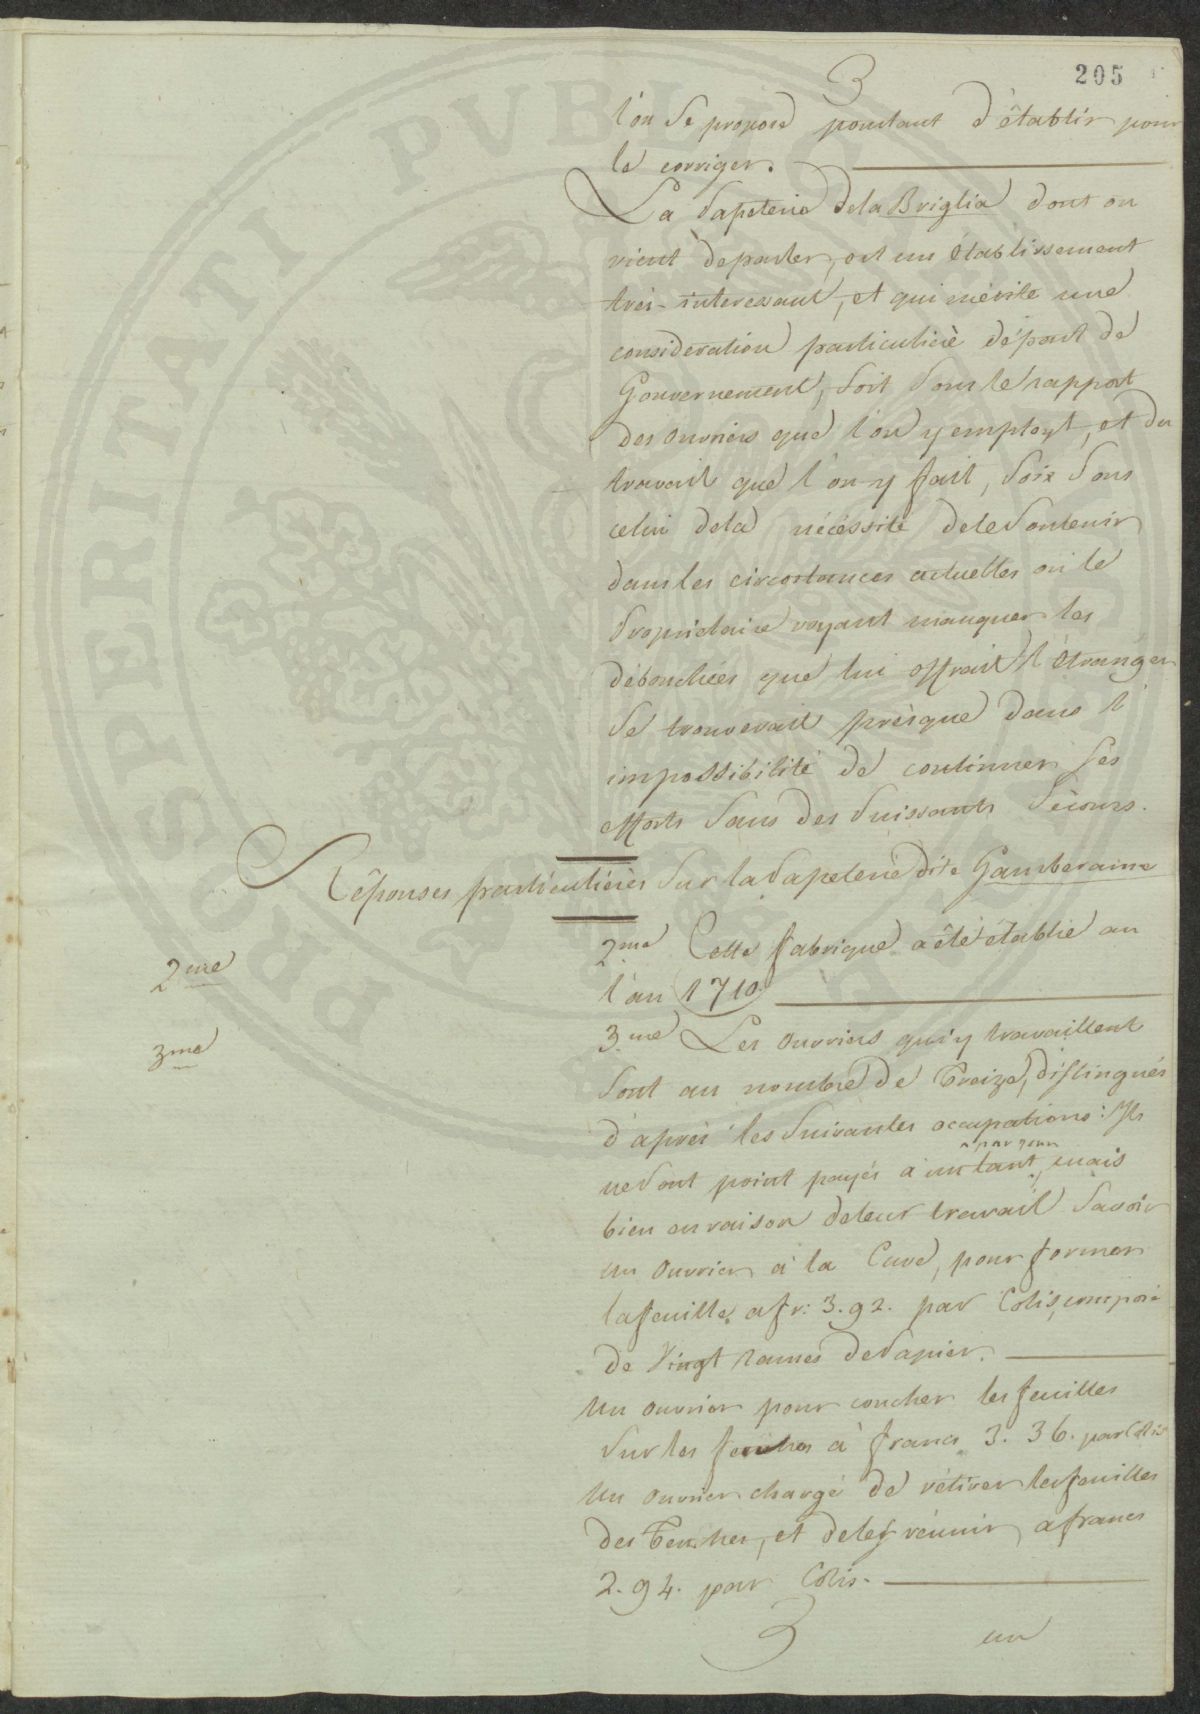 205
3
l'on se propose pourtant d'établir pour
le corriger.
La Papeterie dela Briglia dont on
vient deparler, est un établissement
très-interessant, et qui mérite une
consideration particulière départ de
Gouvernement, soit sous le rapport
des ouvriers que l'on y employt, et du
travail que l'on y fait, soit sous
celui dela nécéssité dele soutenir
dans les circostances actuelles où le
Propriétaire voyant manquer les
débouchées que lui offrait l'étranger
se trouverait présque dans l'
impossibilité de continuer ses
efforts sans des Puissants sécours.
Réponses particulières sur la Papeterie dite Gamberaine
2me
2.me Cette fabrique a été établie au
l'an 1710.
3me
3.me Les ouvriers qui y travaillent
sont au nombre de Treize, distingués
d'après les suivantes occupations: Ils
par jour
ne sont point payés à un tant, mais
bien en raison deleur travail savoir
un ouvrier à la Cuve, pour former
la feuille a fr: 3.92. par Colis, composé
de Vingt rames dePapier.
Un ouvrier pour coucher les feuilles
sur les à francs 3. 36. par Colis
Un ouvrier chargé de rétirer les feuilles
des, et deles réunir a francs
2.94. par Colis.
3
un
PUBLICA
PROSPERITATI